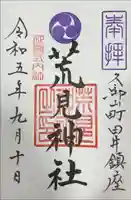 奉拝
久御山町田井鎮座
荒見神社
令和五年九月十日